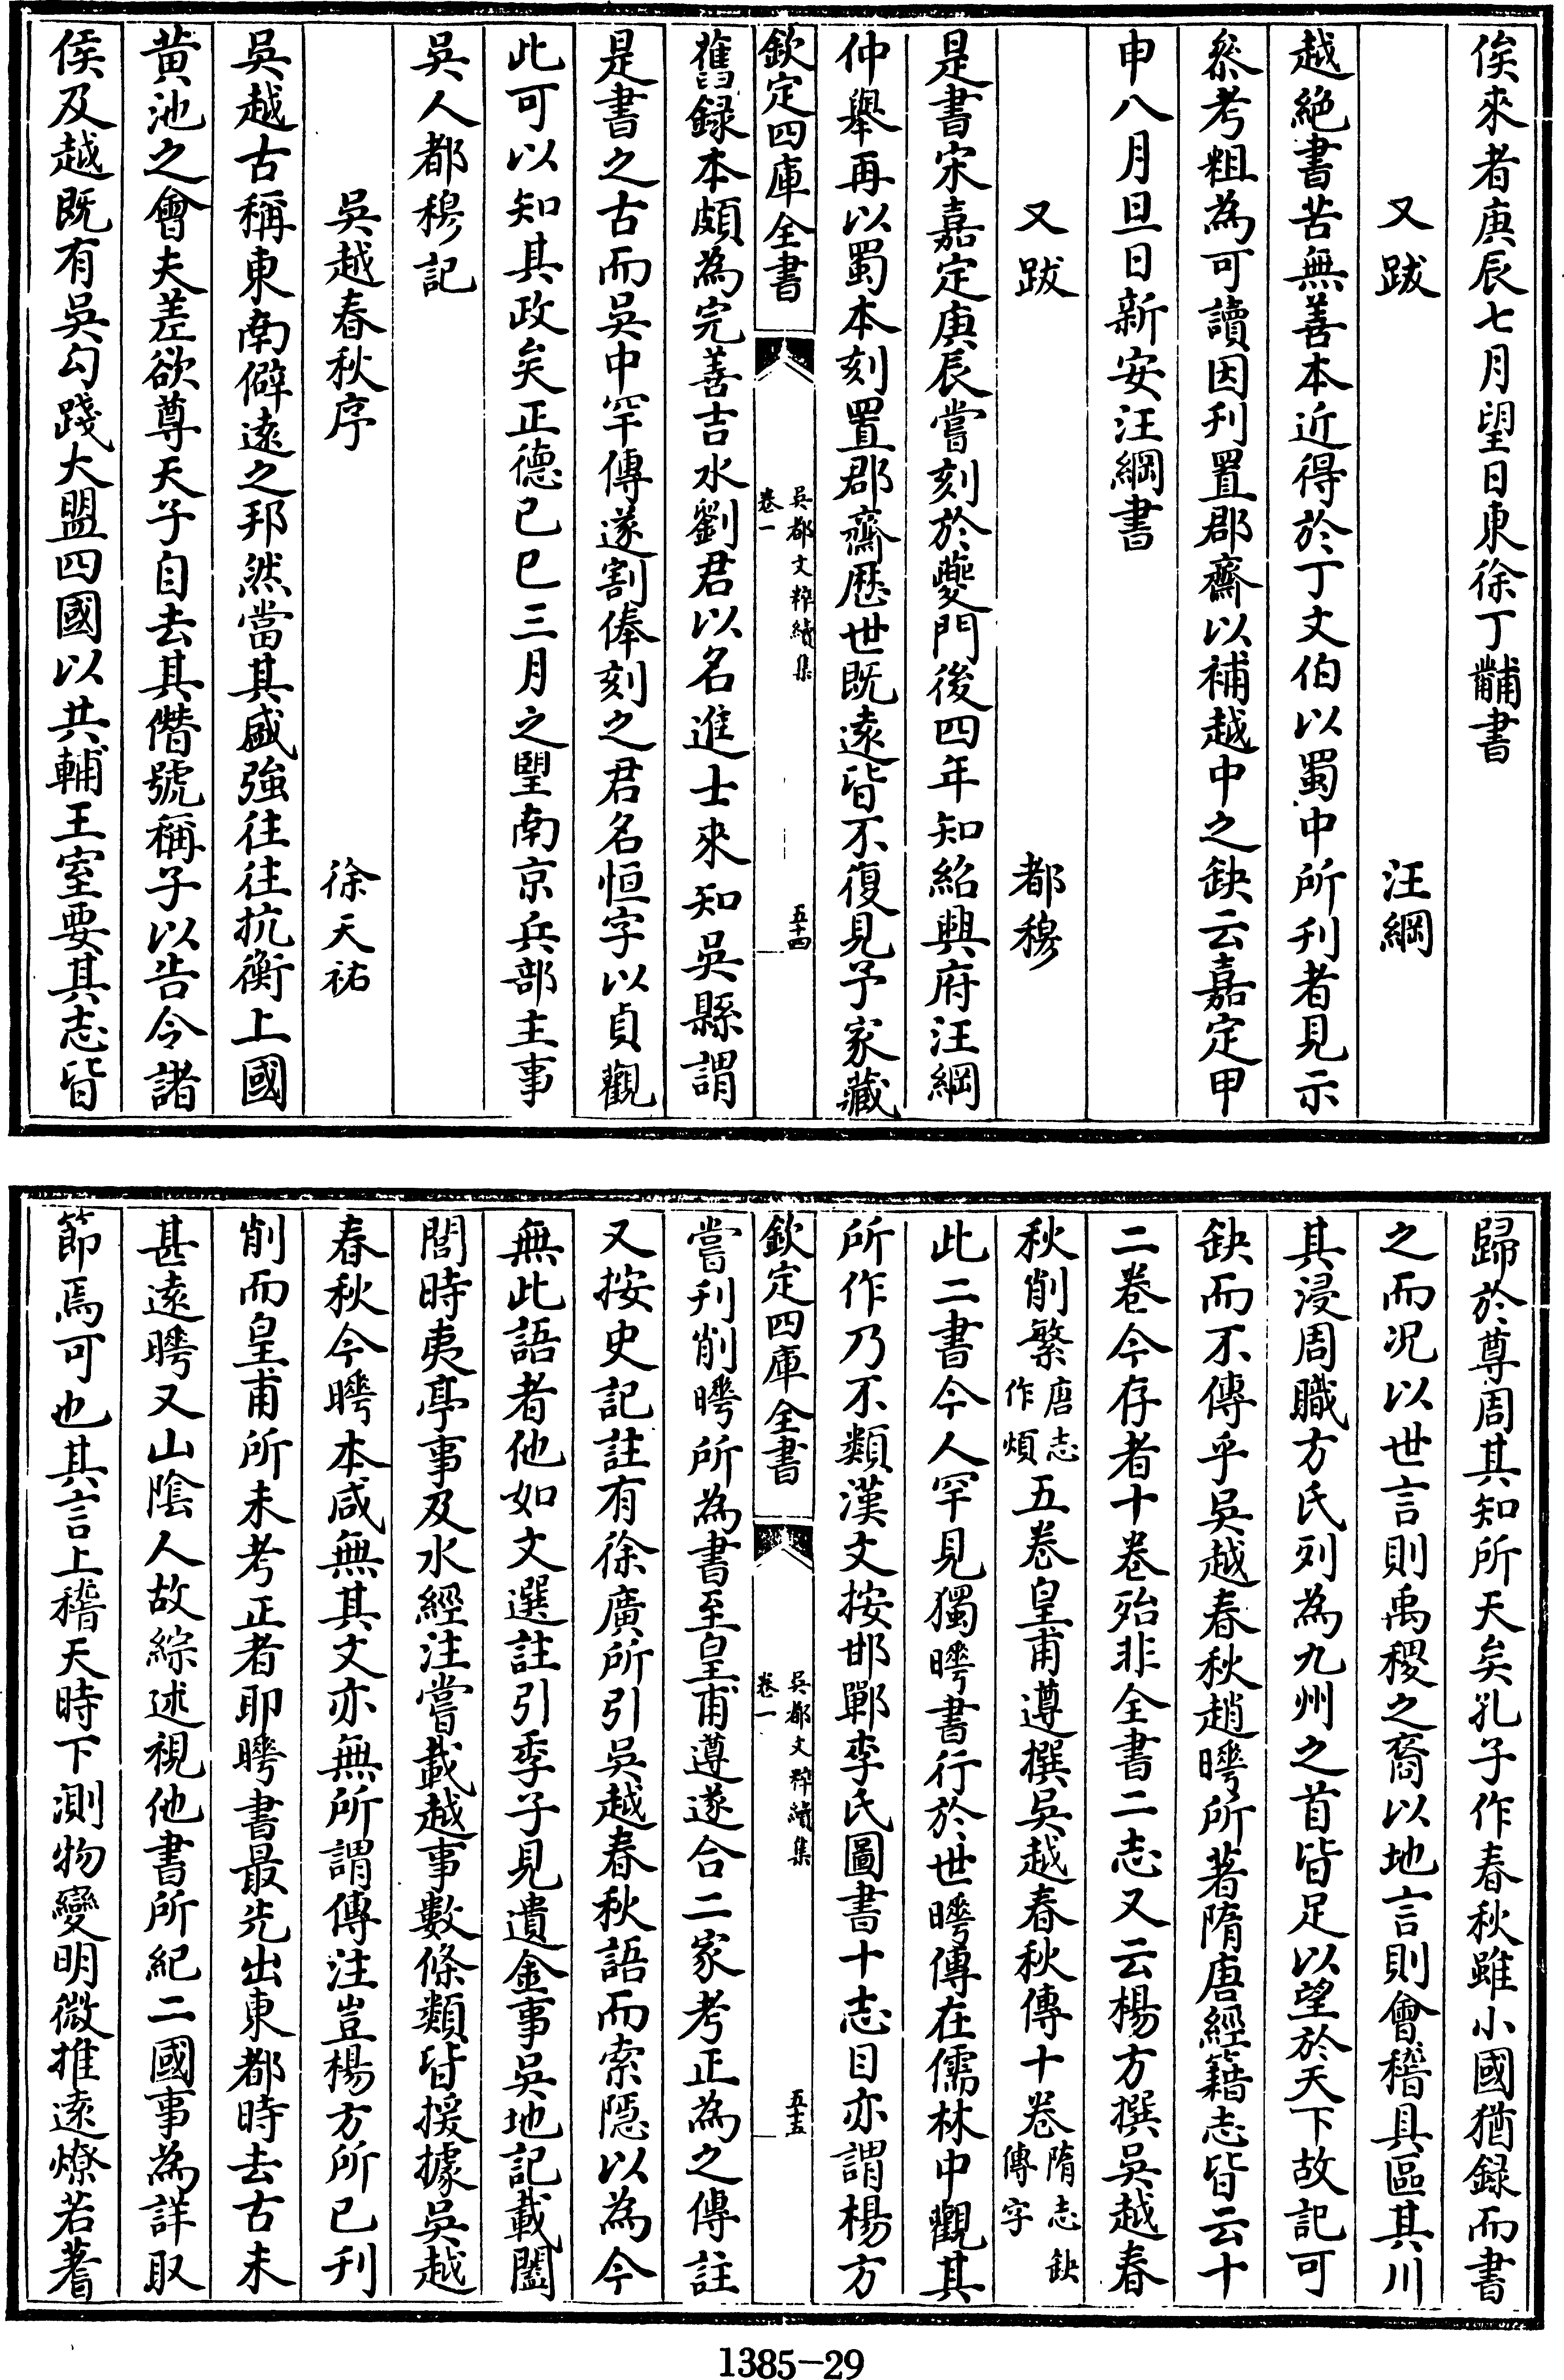 俟來者庚辰七月望日東徐丁黼書
又跋 汪綱
越絶書苦無善本近得於丁文伯以蜀中所刊者見示
叅考粗為可讀因刊置郡齋以補越中之缺云嘉定甲
申八月旦日新安汪綱書
又跋 都穆
是書宋嘉定庚辰嘗刻於夔門後四年知紹興府汪綱
仲舉再以蜀本刻置郡齋歴世既遠皆不復見予家藏
欽定四庫全書
吳都文粹續集
卷一
五十四
舊録本頗為完善吉水劉君以名進士來知吳縣謂
是書之古而吳中罕傳遂割俸刻之君名恒字以貞觀
此可以知其政矣正德已巳三月之朢南京兵部主事
吳人都穆記
吳越春秋序 徐天祐
吳越古稱東南僻逺之邦然當其盛強往往抗衡上國
黄池之會夫差欲尊天子自去其僭號稱子以告令諸
侯及越既有吳勾踐大盟四國以共輔王室要其志皆
歸於尊周其知所天矣孔子作春秋雖小國猶録而書
之而况以世言則禹稷之裔以地言則會稽具區其川
其浸周職方氏列為九州之首皆足以望於天下故記可
缺而不傳乎吳越春秋趙曄所著隋唐經籍志皆云十
二卷今存者十卷殆非全書二志又云楊方撰吳越春
秋削繁唐志作煩五卷皇甫遵撰吳越春秋傳十卷隋志缺傳字
此二書今人罕見獨曄書行於世曄傳在儒林中觀其
所作乃不類漢文按邯鄲李氏圖書十志目亦謂楊方
欽定四庫全書
吳都文粹續集
卷一
五十五
嘗刋削曄所為書至皇甫遵遂合二家考正為之傳註
又按史記註有徐廣所引吳越春秋語而索隱以為今
無此語者他如文選註引季子見遺金事吳地記載闔
閭時夷亭事及水經注嘗載越事數條類皆援據吳越
春秋今曄本咸無其文亦無所謂傳注豈楊方所已刋
削而皇甫所未考正者耶曄書最先出東都時去古未
甚遠曄又山陰人故綜述視他書所紀二國事為詳取
節焉可也其言上稽天時下測物變明微推逺燎若蓍
1385-29